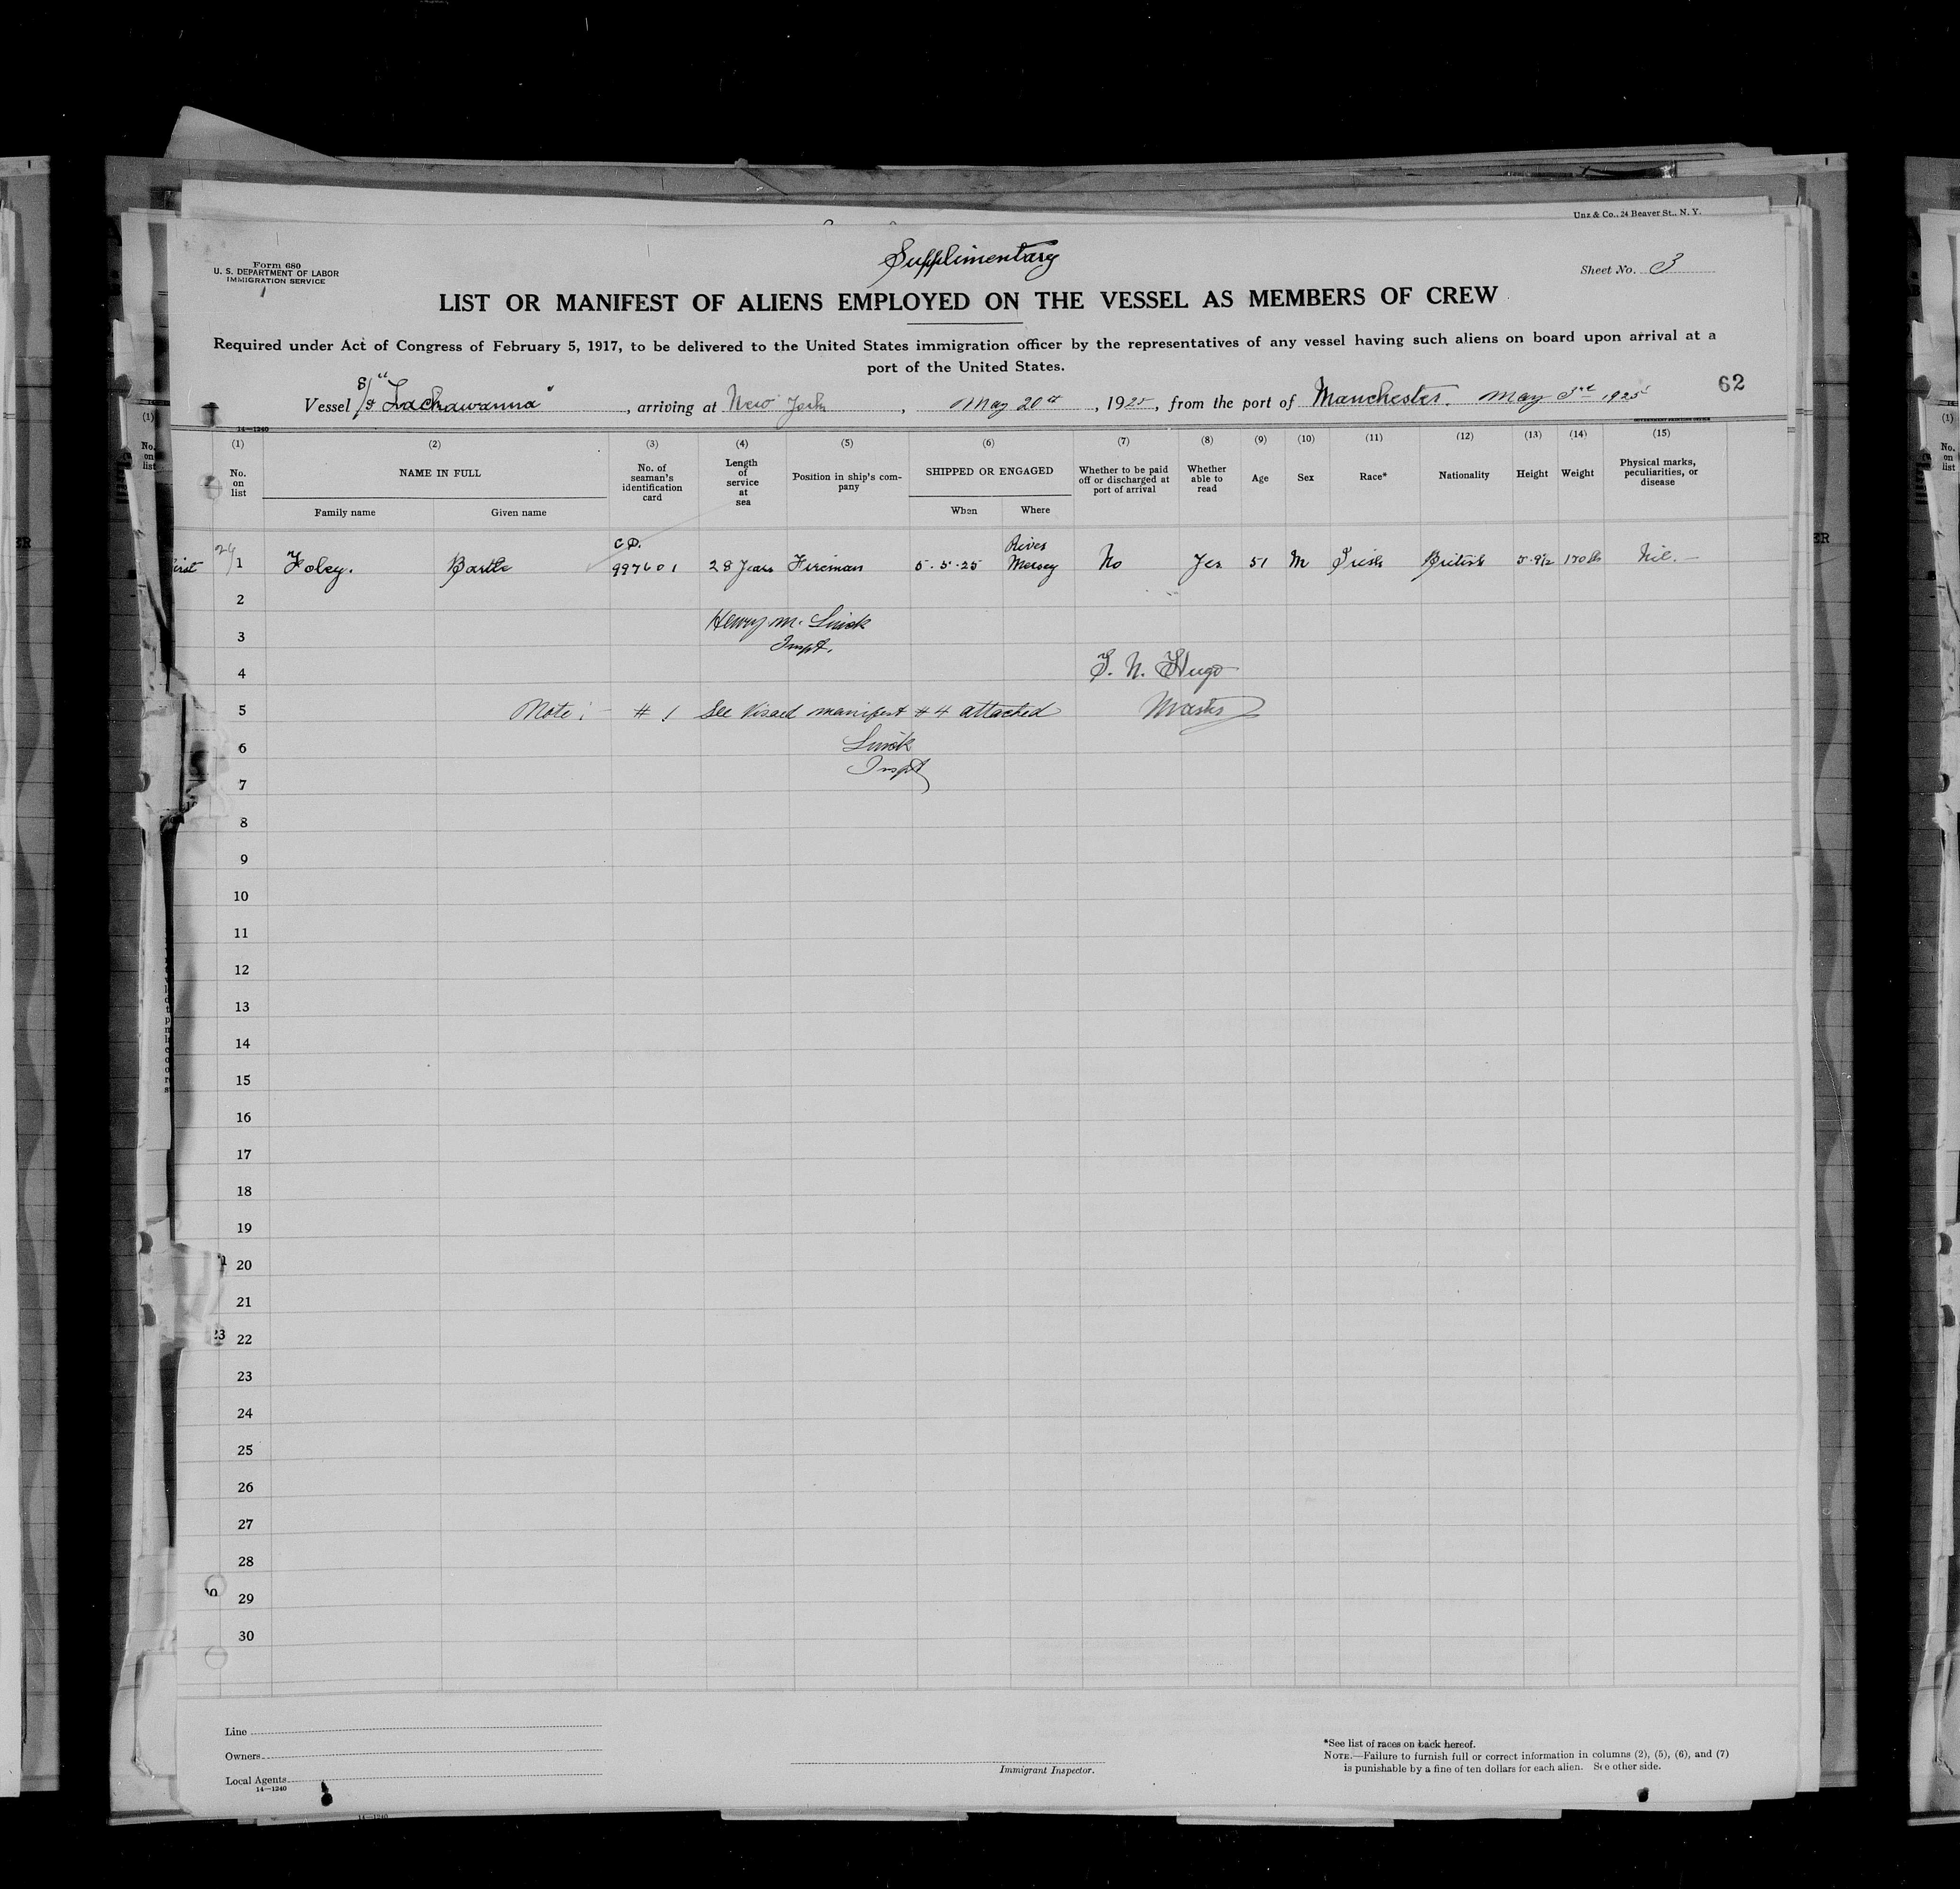 Unz & Co., 24 Beaver St., N. Y.
Supplimentary
Form 680
U. S. DEPARTMENT OF LABOR
IMMIGRATION SERVICE
Sheet No. 3
LIST OR MANIFEST OF ALIENS EMPLOYED ON THE VESSEL AS MEMBERS OF CREW
Required under Act of Congress of February 5, 1917, to be delivered to the United States immigration officer by the representatives of any vessel having such aliens on board upon arrival at a
port of the United States.
62
Vessel S/S "Lackawanna", arriving at New York, May 20th, 1925, from the port of Manchester. May 3rd 1925
14—1240
(1) (2) (3) (4) (5) (6) (7) (8) (9) (10) (11) (12) (13) (14) (15)
No. on list
NAME IN FULL
Family name
Given name
No. of seaman's identification card
Length of service at sea
Position in ship's company
SHIPPED OR ENGAGED
When
Where
Whether to be paid off or discharged at port of arrival
Whether able to read
Age
Sex
Race*
Nationality
Height
Weight
Physical marks, peculiarities, or disease
24/1 Foley. Bartle C.D. 997601 28 Years Fireman 5.5.25 River Mersey No Yes 51 M Irish British 5.9½ 170 lbs Nil.—
2
Henry M.
3
Inspt.
4
T. N. Hugo
5 Note:- #1 See Visaed manifest #4 attached
Master
6
Inspt
7
8
9
10
11
12
13
14
15
16
17
18
19
20
21
22
23
24
25
26
27
28
29
30
Line
Owners
Local Agents
14—1240
Immigrant Inspector.
*See list of races on back hereof.
NOTE.—Failure to furnish full or correct information in columns (2), (5), (6), and (7)
is punishable by a fine of ten dollars for each alien. See other side.